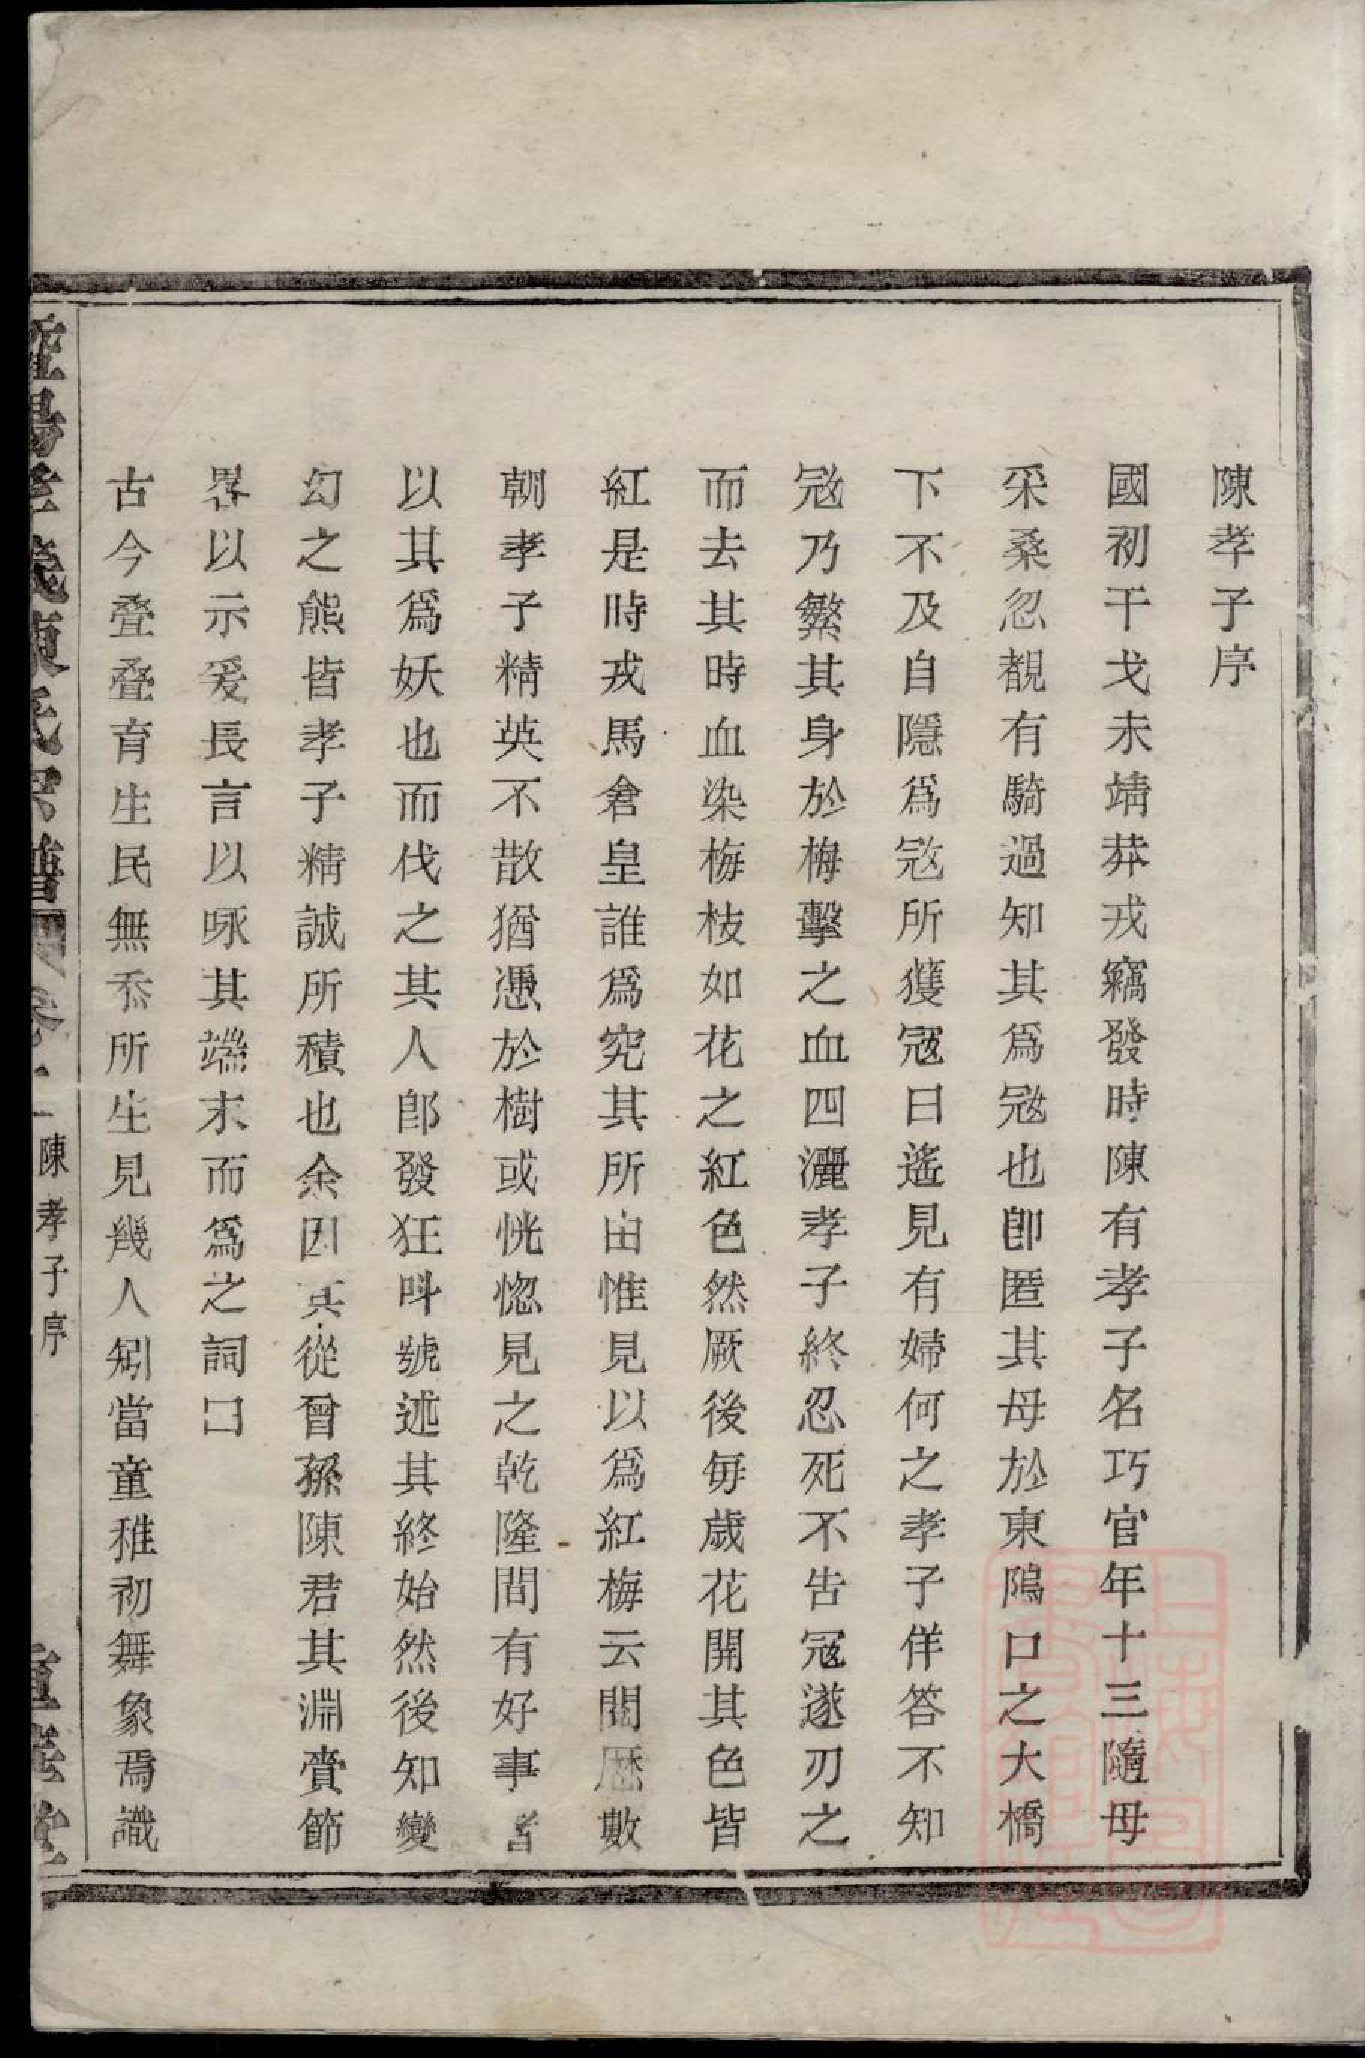 陳孝子序
國初干戈未靖莽戎竊發時陳有孝子名巧官年十三隨母
采桑忽覩有騎過知其爲冦也卽匿其母於東隖口之大橋
下不及自隱爲冦所獲冦曰遙見有婦何之孝子佯答不知
冦乃繁其身於梅擊之血四灑孝子終忍死不告冦遂刃之
而去其時血染梅枝如花之紅色然厥後每歲花開其色皆
紅是時戎馬倉皇誰爲究其所由惟見以爲紅梅云閱歷數
朝孝子精英不散猶憑於樹或恍惚見之乾隆間有好事者
以其爲妖也而伐之其人卽發狂呌號述其終始然後知變
幻之熊皆孝子精誠所積也余因其從曾孫陳君其淵賫節
畧以示爰長言以咏其端末而爲之詞曰
古今叠叠育生民無忝所生見幾人矧當童稚初舞象焉識
暨陽孝義陳氏宗譜 卷一 陳孝子序